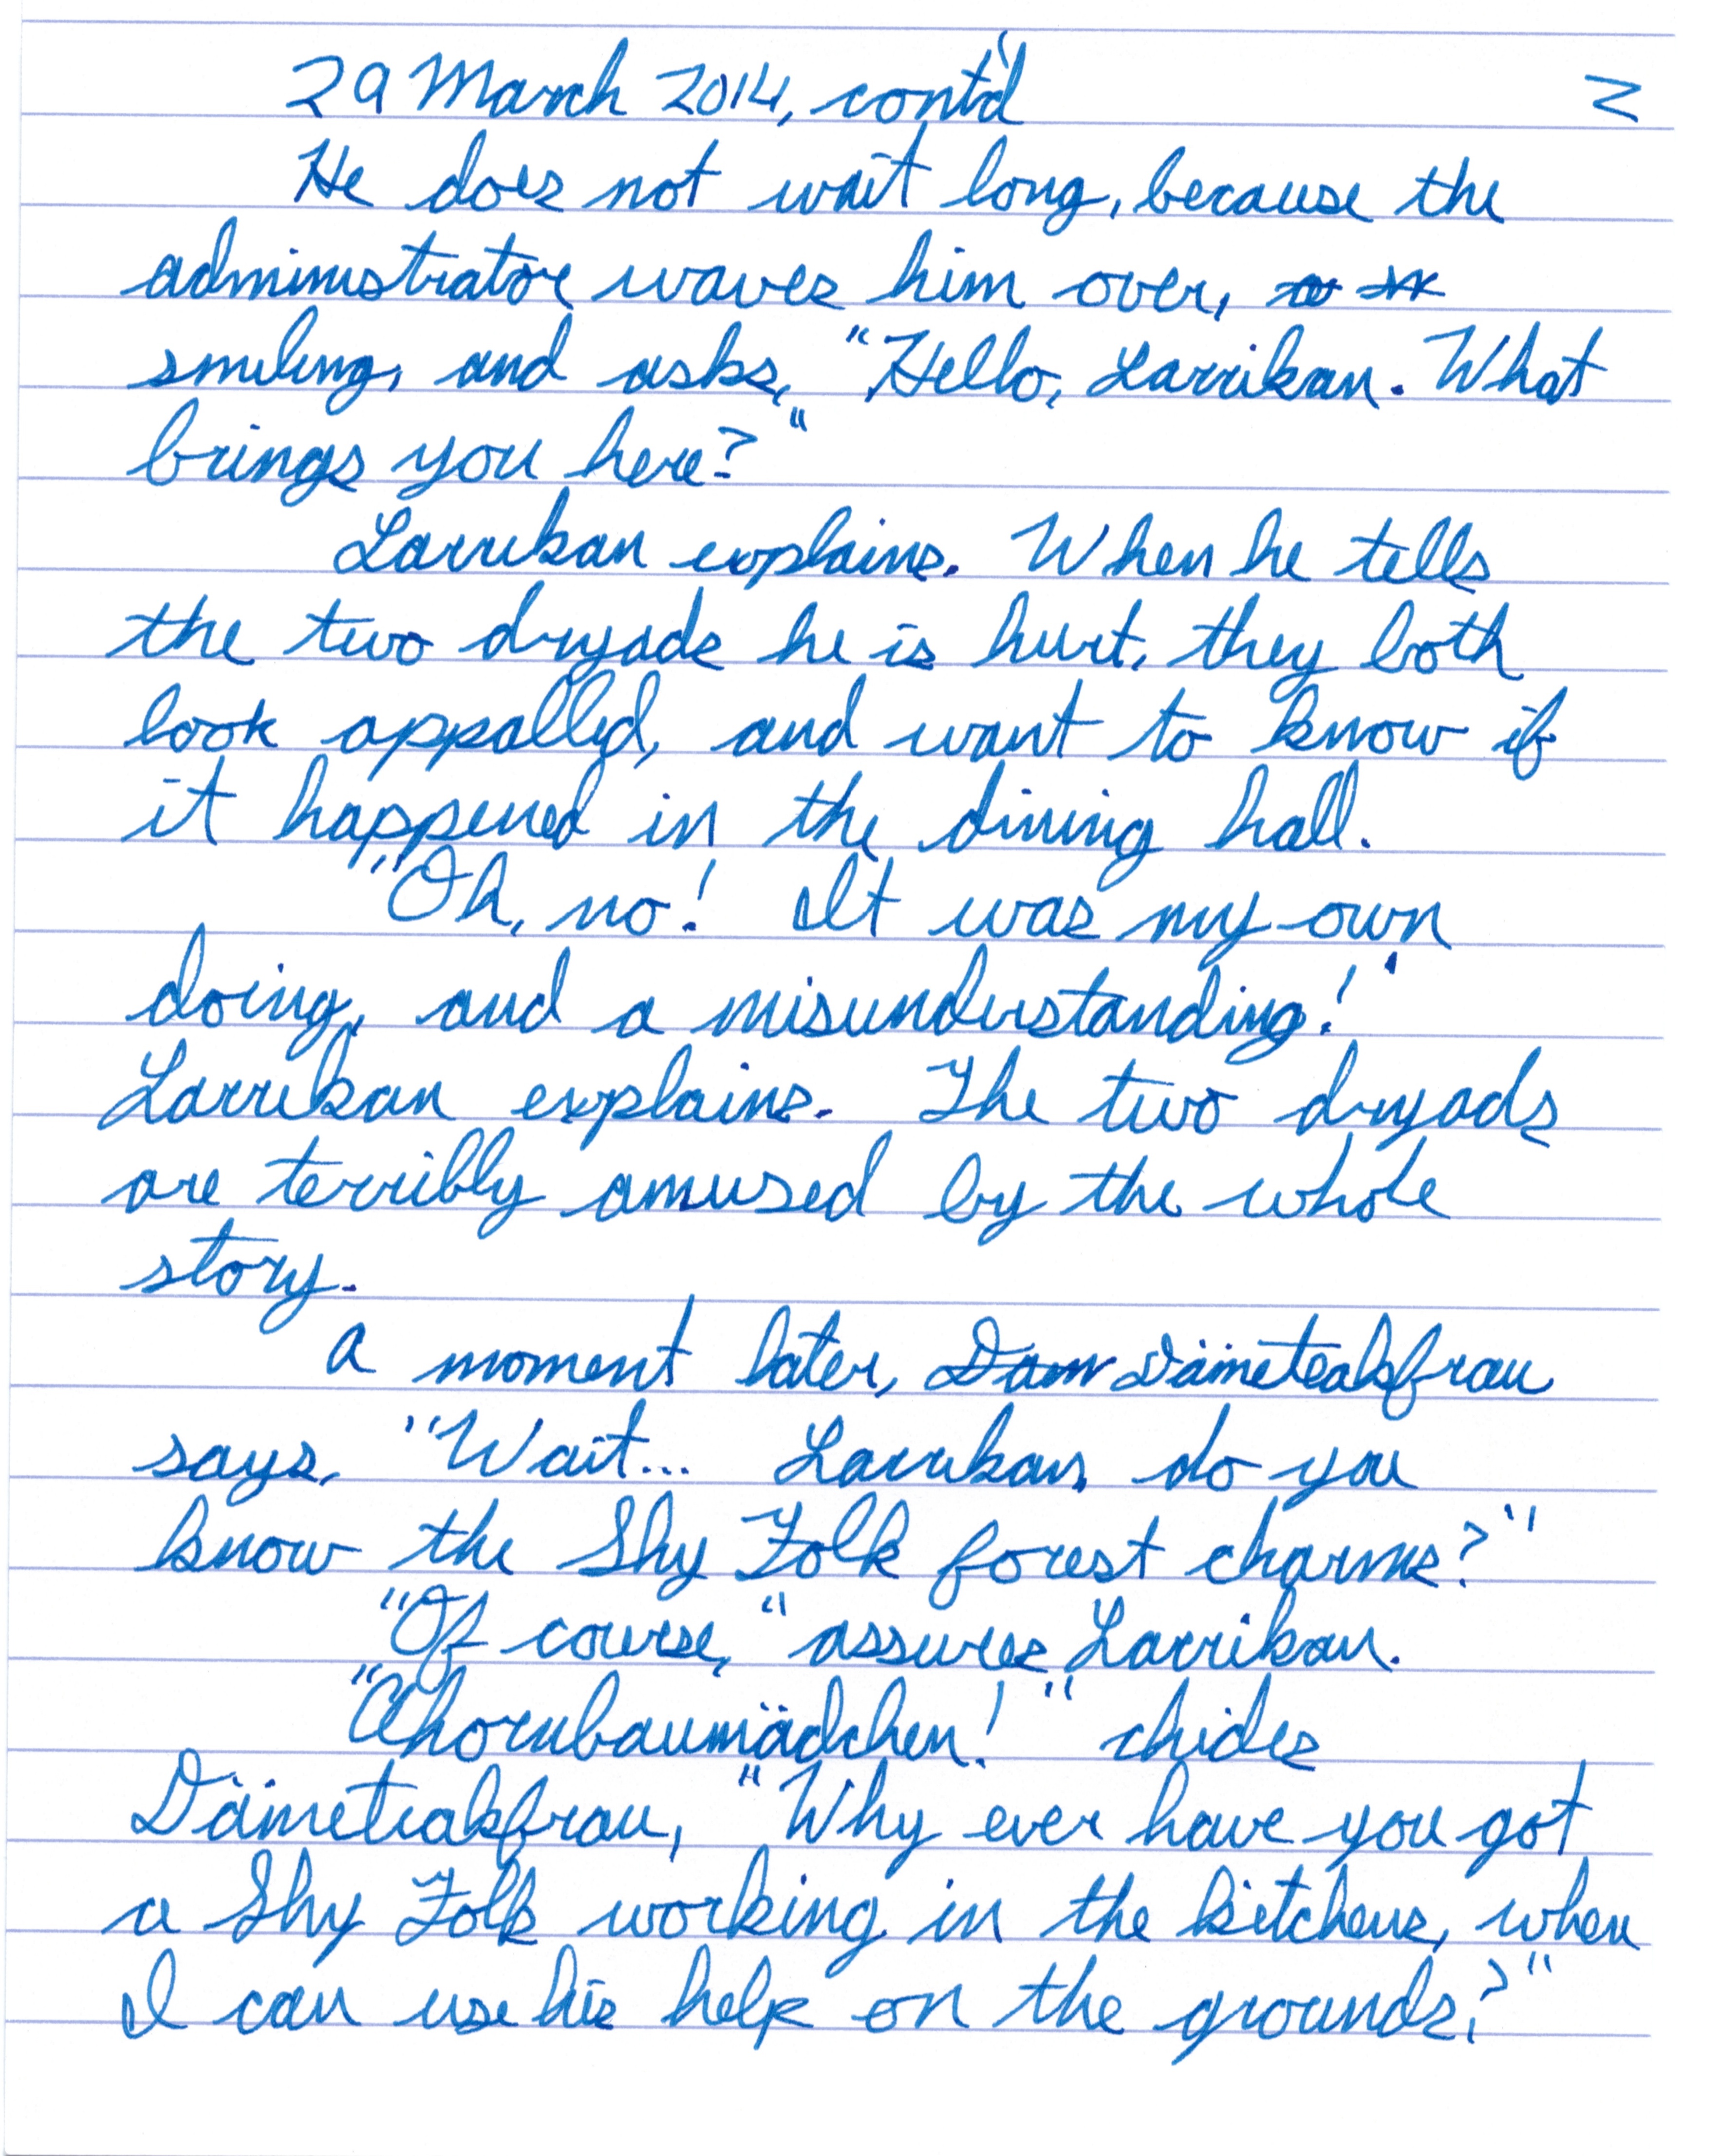 29 March 2014, cont'd 2
He does not wait long, because the
administrator waves him over,
smiling, and asks, "Hello, Larrikan. What
brings you here?"
Larrikan explains. When he tells
the two dryads he is hurt, they both
look appalled, and want to know if
it happened in the dining hall.
"Oh, no! It was my own
doing, and a misunderstanding!"
Larrikan explains. The two dryads
are terribly amused by the whole
story.
A moment later, Dämeteakfrau
says, "Wait... Larrikan, do you
know the Shy Folk forest charms?"
"Of course," assures Larrikan.
"Ahornbaumädchen!" chides
Dämeteakfrau, "Why ever have you got
a Shy Folk working in the kitchens, when
I can use his help on the grounds?"